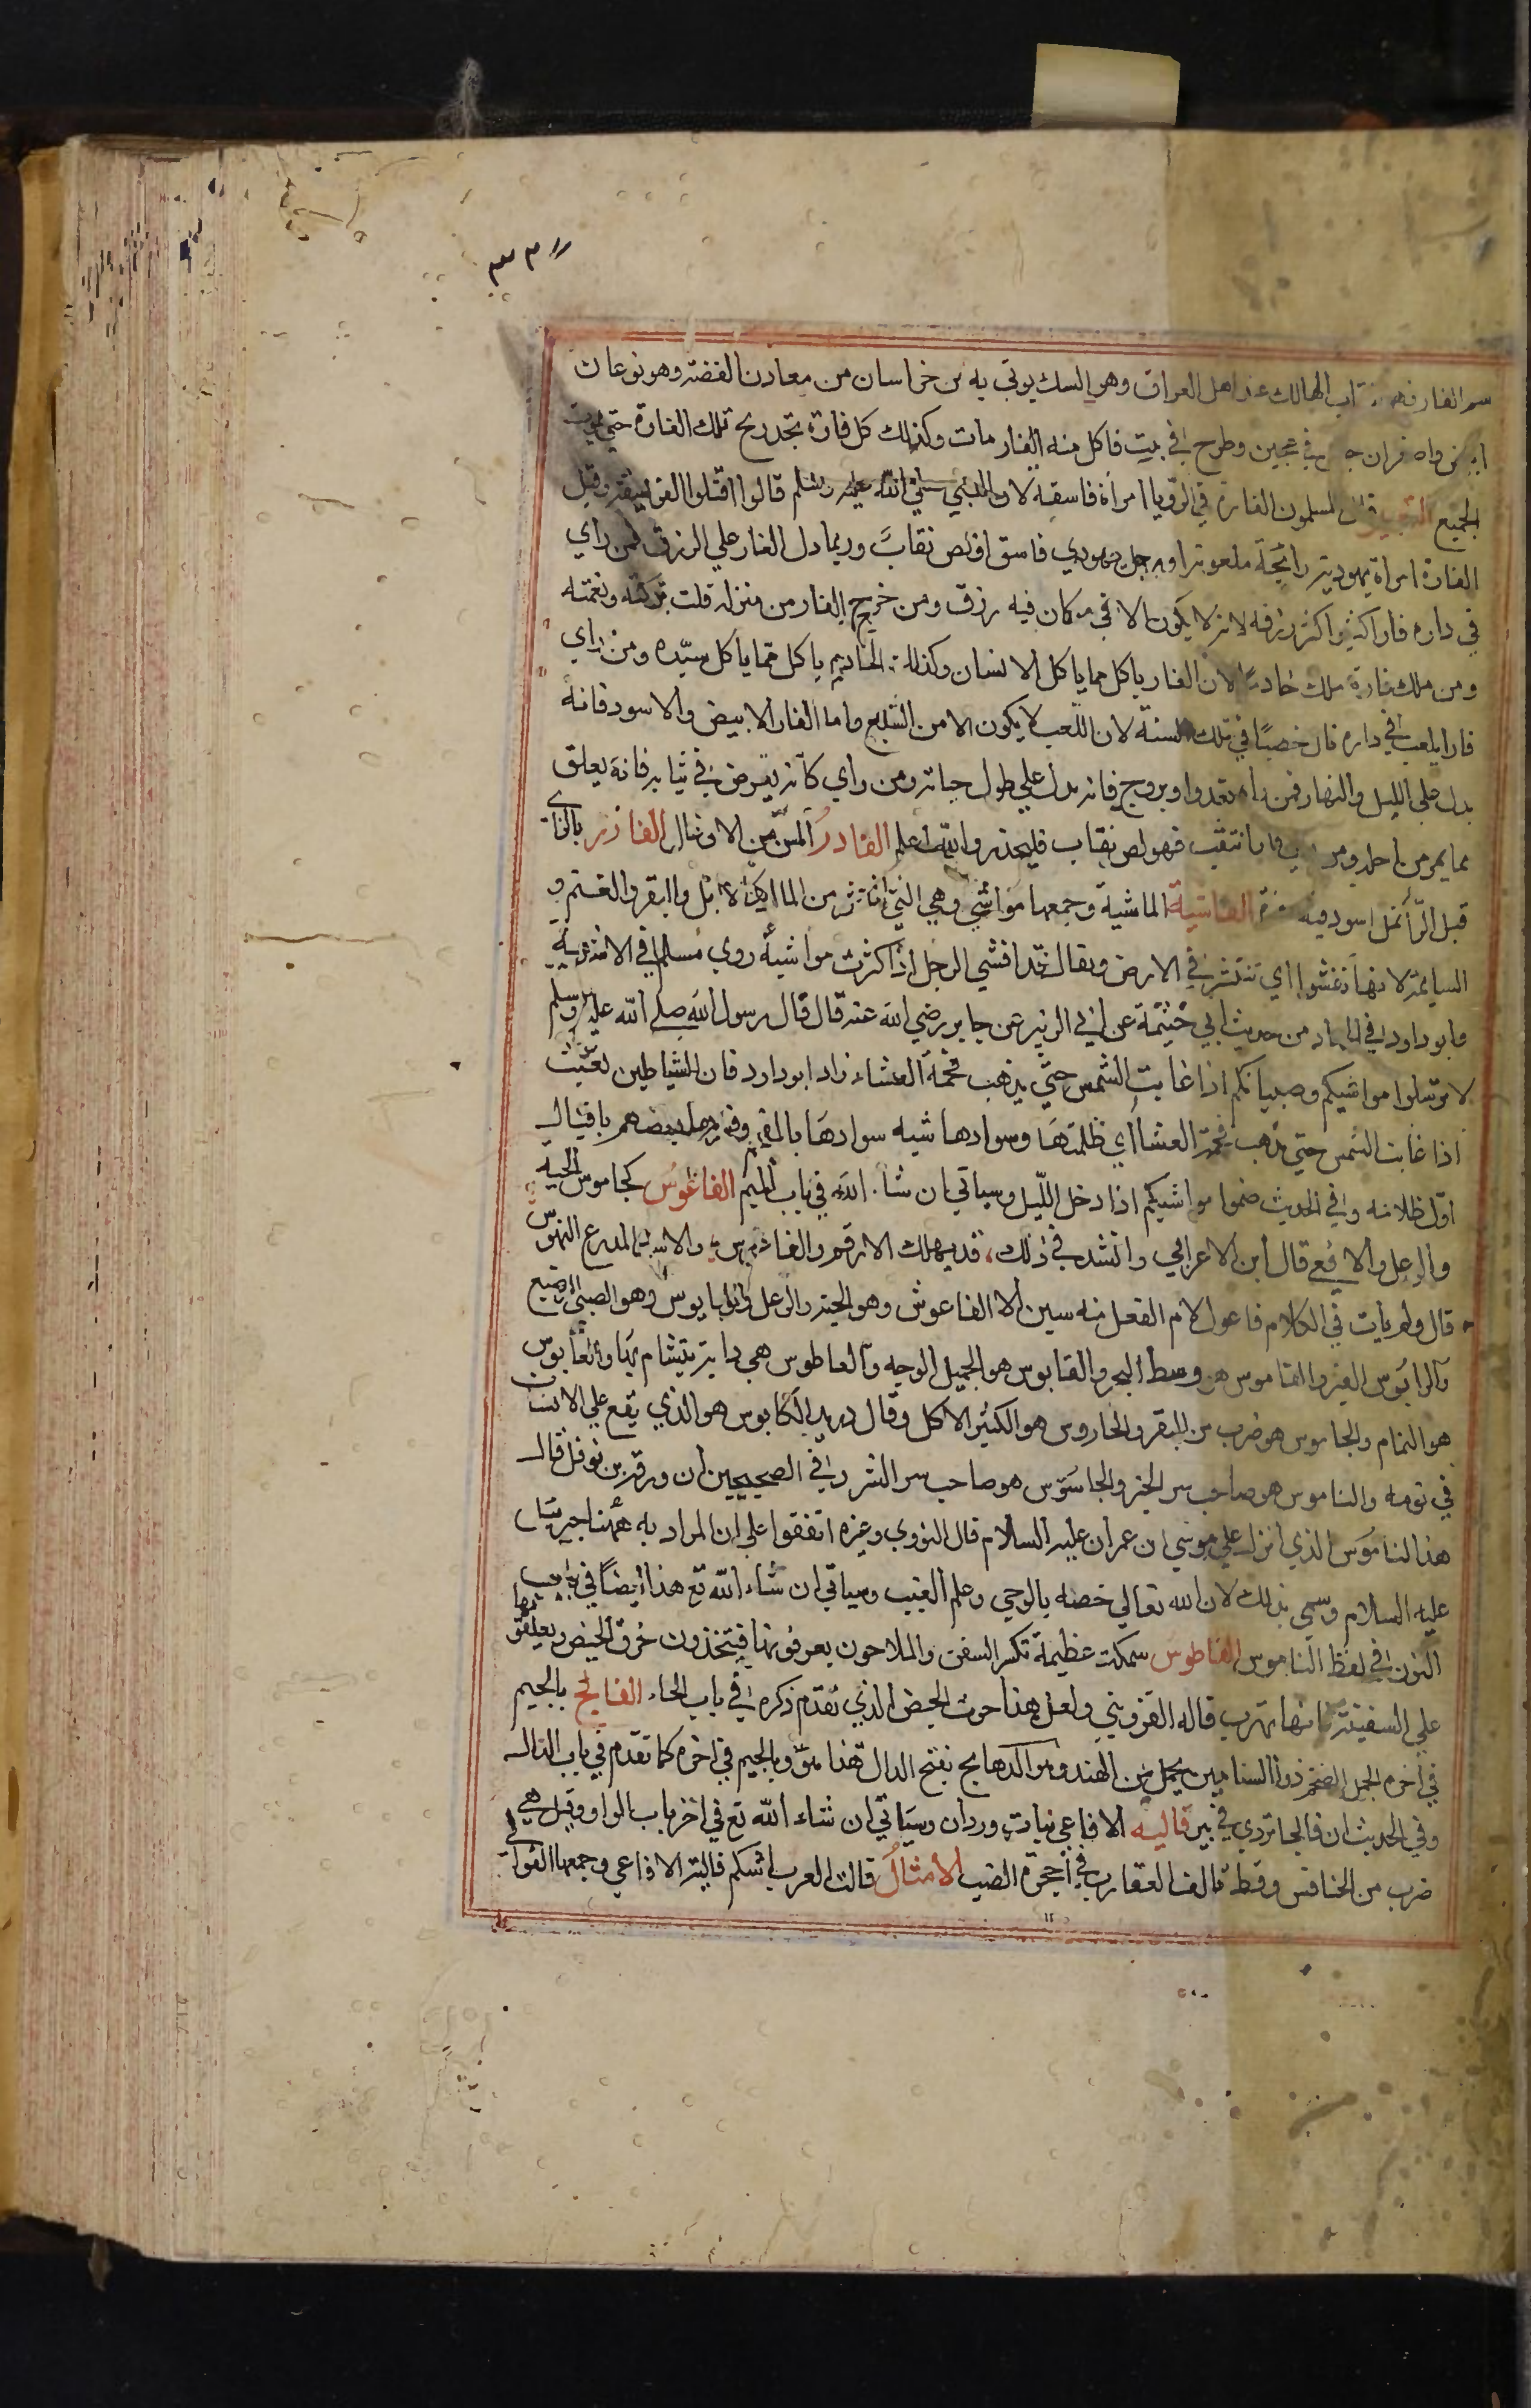 سم الفار فهو تراب الهالك عند اهل العراق وهو السك يوتي به من خراسان من معادن الفضة وهو نوعان
ابيض واصفر ان جعل في عجين وطرح في بيت فاكل منه الفار مات وكذلك كل فارة تجد ريح تلك الفارة حتي يموت
الجميع التعبير قال المسلمون الفارة في الرؤيا امراة فاسقة لان النبي صلي الله عليه وسلم قالوا اقتلوا الفويسقة وقيل
الفارة امراة يهودية رائحة ملعونة او رجل يهودي فاسق اولص نقاب وربما دل الفار علي الرزق فمن راي
في داره فارا كثيرا كثر رزقه لانه لا يكون الا في مكان فيه رزق ومن خرج الفار من منزله قلت بركته ونعمته
ومن ملك فارة ملك خادما لان الفار ياكل مما ياكل الانسان وكذلك الخادم ياكل مما ياكل سيده ومن راي
فارا يلعب في داره نال خصبا في تلك السنة لان اللعب لا يكون الا من الشبع واما الفار الابيض والاسود فانه
يدل علي الليل والنهار فمن راه يغدوا ويروح فانه يدل علي طول حياته ومن راي كانه يقرض في ثيابه فانه يعلق
بما يمر من اجله ومن فارا نقب فهو لص نقاب فليحذره والله اعلم الفادر المسن من الاوعال الفازر بالزاي
قبل الرا نمل اسود فيه حمرة الفاشية الماشية وجمعها مواشي وهي التي تنتشر من المال كالابل والبقر والغنم و
السايمة لانها تفشوا اي تنتشر في الارض ويقال قد افشي الرجل اذا كثرت مواشيه روي مسلم في الاشربة
وابو داود في الجهاد من حديث ابي خثيمة عن ابي الزبير عن جابر رضي الله عنه قال قال رسول الله صلي الله عليه وسلم
لا ترسلوا مواشيكم وصبيانكم اذا غابت الشمس حتي يذهب فحمة العشاء زاد ابو داود فان الشياطين تعبث
اذا غابت الشمس حتي تذهب فحمة العشا اي ظلمتها وسوادها شبه سوادها بالفحم وفسرها بعضهم باقبال
اول ظلامه وفي الحديث ضموا مواشيكم اذا دخل الليل وسياتي ان شا الله في باب الميم الفاغوس كجاموس الحية
والوعل والافعي قال ابن الاعرابي وانشد في ذلك، قد يهلك الارقم والفاغوس والاسد المدرع النهوس
قال ولم يات في الكلام فاعول لام الفعل منه سين الا الفاعوش وهو الحية والوعل والبابوس وهو الصبي الرضيع
والراموس القبر والقاموس هو وسط البحر والقابوس هو الجميل الوجه والعاطوس هي دابة يتشام بها والفانوس
هو النمام والجاموس هو ضرب من البقر والجاروس هو الكثير الاكل وقال دريد الكابوس هو الذي يقع علي الانسان
في نومه والناموس هو صاحب سر الخير والجاسوس هو صاحب سر الشر وفي الصحيحين ان ورقة بن نوفل قال
هذا الناموس الذي انزل علي موسي ابن عمران عليه السلام قال النووي وغيره اتفقوا علي ان المراد به هنا جبريل
عليه السلام وسمي بذلك لان الله تعالي خصه بالوحي وعلم الغيب وسياتي ان شاء الله تع هذا ايضا في باب
النون في لفظ الناموس الفاطوس سمكة عظيمة تكسر السفن والملاحون يعرفونها فيتخذون خرق الحيض ويعلقونها
علي السفينة فانها تهرب قاله القزويني ولعل هذا حوت الحيض الذي تقدم ذكره في باب الحاء الفالج بالجيم
في اخره الجمل الضخم ذوا السنامين يحمل من الهند وهو الدهامج بفتح الدال هذا هو وبالجيم في اخره كما تقدم في باب الدال
وفي الحديث ان فالجا تردي في بير فالية الافاعي نبات وردان وسياتي ان شاء الله تع في اخر باب الواو وقيل هي
ضرب من الخنافس وقط تالف العقارب في احجرة الضب الامثال قالت العرب اتتكم فالية الافاعي وجمعها الفوالي